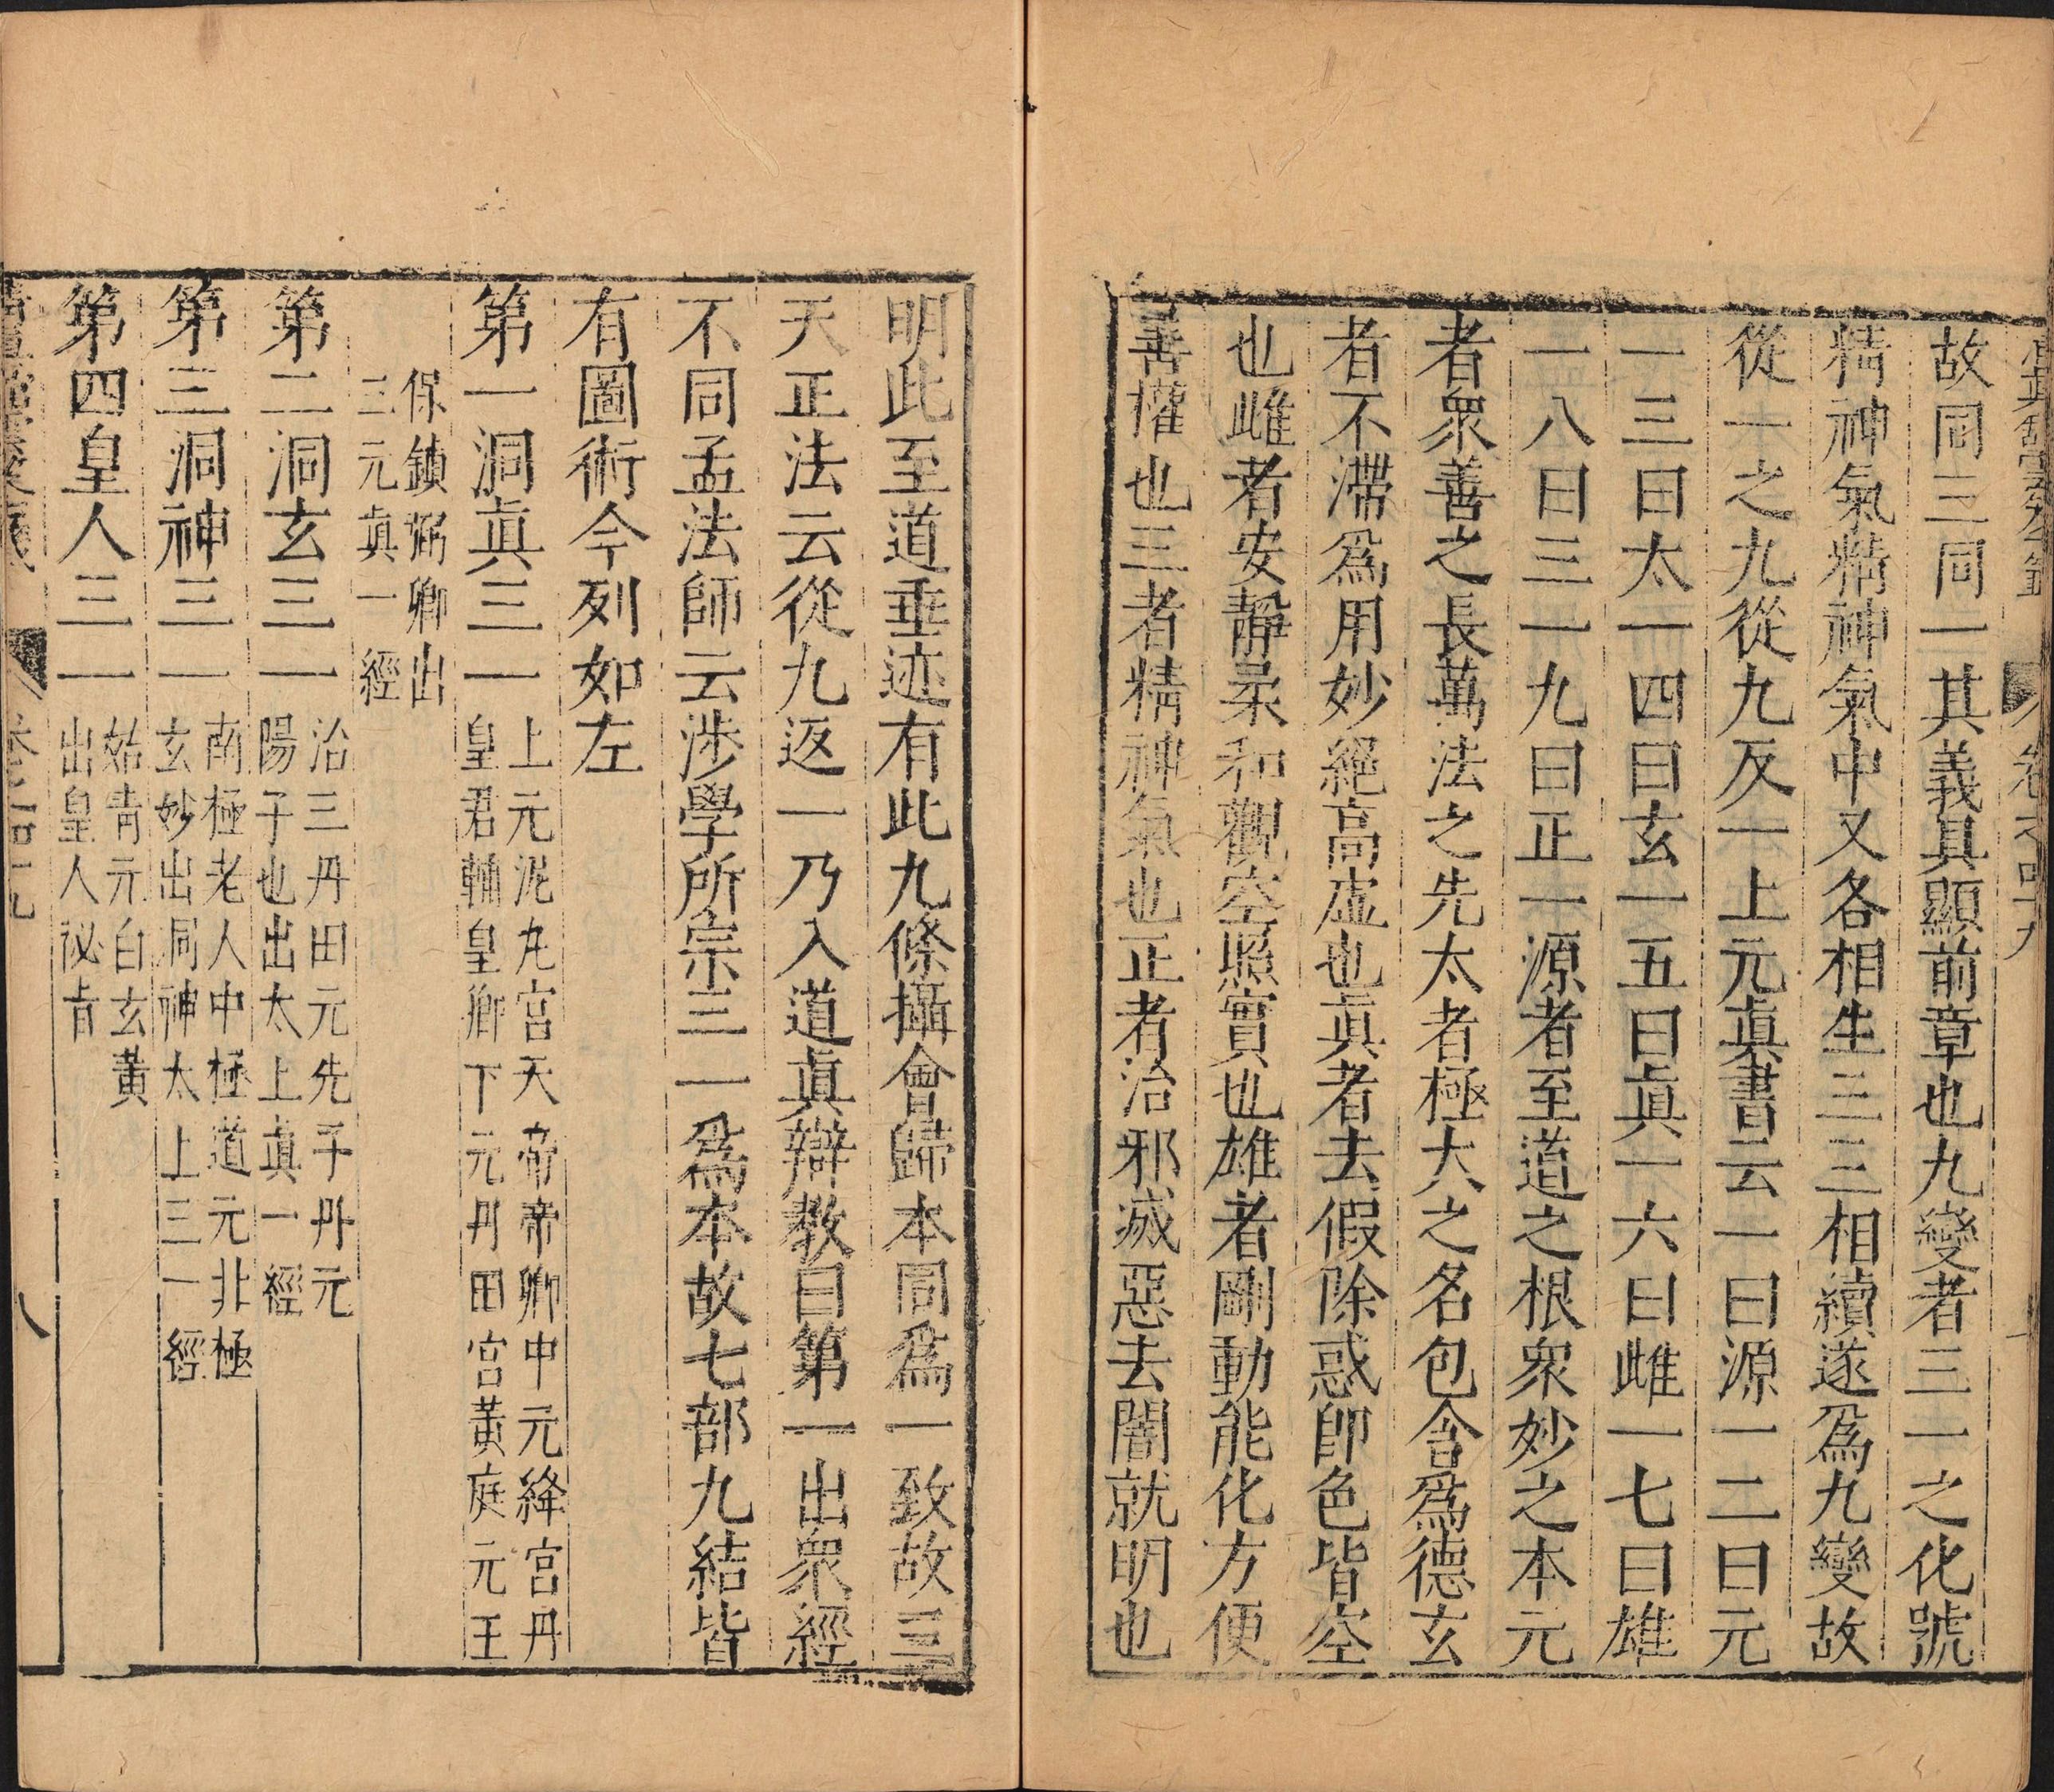 卷之四十九
故同三同一其義具顯前章也九變者三一之化號
精神氣精神氣中又各相生三三相續遂爲九變故
從一之九從九反一上元眞書云一曰源一二曰元
一三曰太一四曰玄一五曰眞一六曰雌一七曰雄
一八曰三一九曰正一源者至道之根衆妙之本元
者衆善之長萬法之先太者極大之名包含爲德玄
者不滯爲用妙絕高虛也眞者去假除惑卽色皆空
也雌者安靜柔和觀空照實也雄者剛動能化方便
善權也三者精神氣也正者治邪滅惡去闇就明也
明此至道垂迹有此九條攝會歸本同爲一致故三
天正法云從九返一乃入道眞辯教曰第一出衆經
不同孟法師云涉學所宗三一爲本故七部九結皆
有圖術今列如左
第一洞眞三一上元泥丸宮天帝帝卿中元絳宮丹
皇君輔皇卿下元丹田宮黃庭元王
保鎮弼卿出
三元眞一經
第二洞玄三一治三丹田元先子丹元
陽子也出太上眞一經
第三洞神三一南極老人中極道元北極
玄妙出洞神太上三一經
第四皇人三一始靑元白玄黃
出皇人祕旨
卷之四十九
八